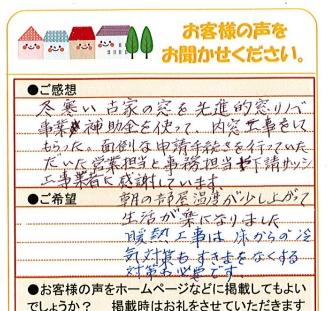 お客様の声を
お聞かせください。
●ご感想
冬寒い古家の窓を先進的窓リノベ
事業補助金を使って、内窓工事をして
もらった。面倒な申請手続きを行っていた
だいた営業担当と事務担当、下請サッシ
工事業者に感謝しています。
●ご希望 朝の部屋温度が少し上がって
生活が楽になりました
暖熱工事は床からの冷
気対策もすきまをなくする
対策も必要です。
●お客様の声をホームページなどに掲載してもよい
でしょうか? 掲載時はお礼をさせていただきます